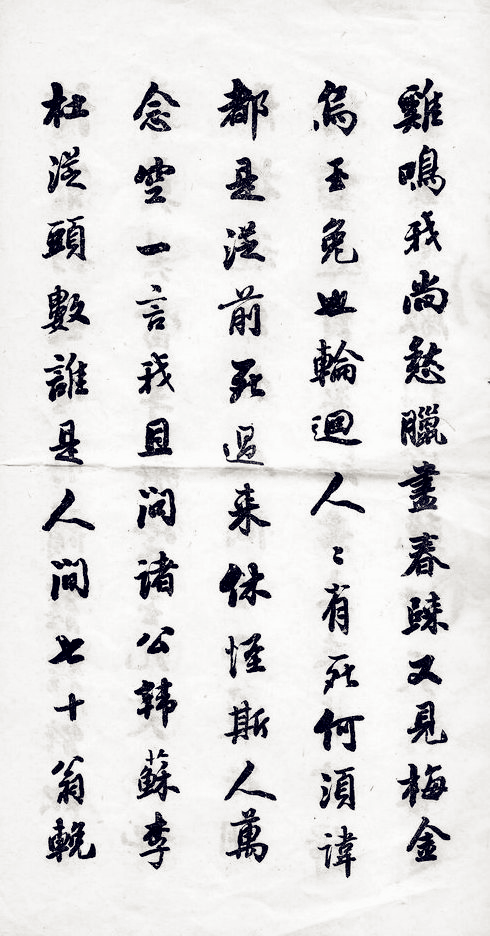 雞鳴我尚愁臘盡春歸又見梅金
烏玉兔也輪迴人〻有死何須諱
都是從前死過来休怪斯人萬
念空一言我且問諸公韓蘇李
杜從頭數誰是人間七十翁輓